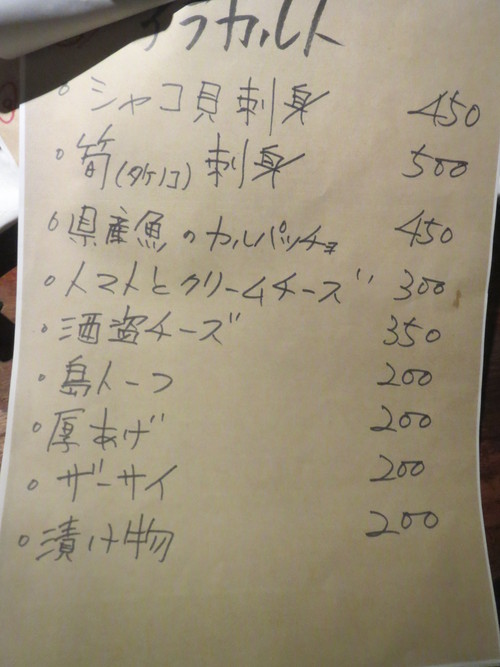 アラカルト
○シャコ貝刺身 450
○筍(タケノコ)刺身 500
○県産魚のカルパッチョ 450
○トマトとクリームチーズ 300
○酒盗チーズ 350
○島トーフ 200
○厚あげ 200
○ザーサイ 200
○漬け物 200